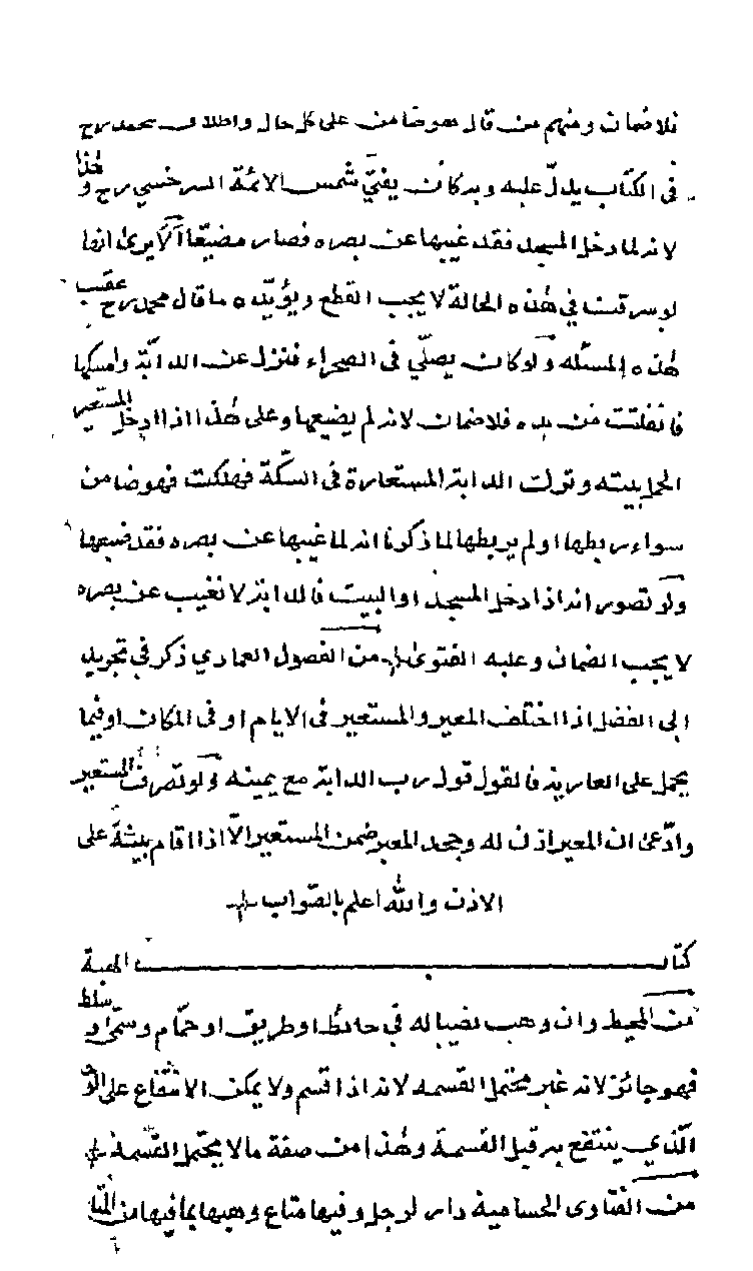 فلا ضمان ومنهم من قال هو ضامن على كل حال واطلاق محمد رح
فى الكتاب يدلّ عليه وبه كان يفتىّ شمس الائمّة السرخسي رح وهذا
لانه لما دخل المسجد فقد غيبها عن بصره فصار مضيّعا ألا يرىٰ انها
لو سرقت في هٰذه الحالة لا يجب القطع ويؤيّده ما قال محمد رح عقيب
هٰذه المسئله ولو كان يصلّي فى الصحراء فنزل عن الدابّة وامسكها
فانفلتت من يده فلا ضمان لانه لم يضيعها وعلى هٰذا اذا ادخل المستعير
الحمل بيته وترك الدابة المستعارة فى السكّة فهلكت فهو ضامن
سواء ربطها او لم يربطها لما ذكرنا انه لما غيبها عن بصره فقد ضيعها
ولو تصور انه اذا دخل المسجد او البيت فالدابة لا تغيب عن بصره
لا يجب الضمان وعليه الفتوىٰ من الفصول العمادي ذكر في تجريد
ابى الفضل اذا اختلف المعير والمستعير فى الايام او فى المكان او فيما
يحمل على العارية فالقول قول رب الدابة مع يمينه ولو تصرف المستعير
وادّعىٰ ان المعير اذن له وجحد المعير ضمن المستعير الّا اذا اقام بيّنةً على
الاذن والله اعلم بالصّواب
كتاب الهبة
من المحيط وان وهب نصيبا له في حائط او طريق او حمّام وسمّى وسلط
فهو جائز لانه غير محتمل القسمه لانه اذا قسم ولا يمكن الانتفاع على الوجه
الّذي ينتفع به قبل القسمة وهٰذا من صفة ما لا يحتمل القسمة
من الفتاوى الحسامية دار لرجل وفيها متاع وهبها بما فيها من المتاع